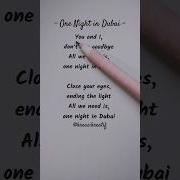 ~ One Night in Dubai ~
You and I,
don't goodbye
All we is,
one night in
Close your eyes,
ending the light
All we need is,
one night in Dubai